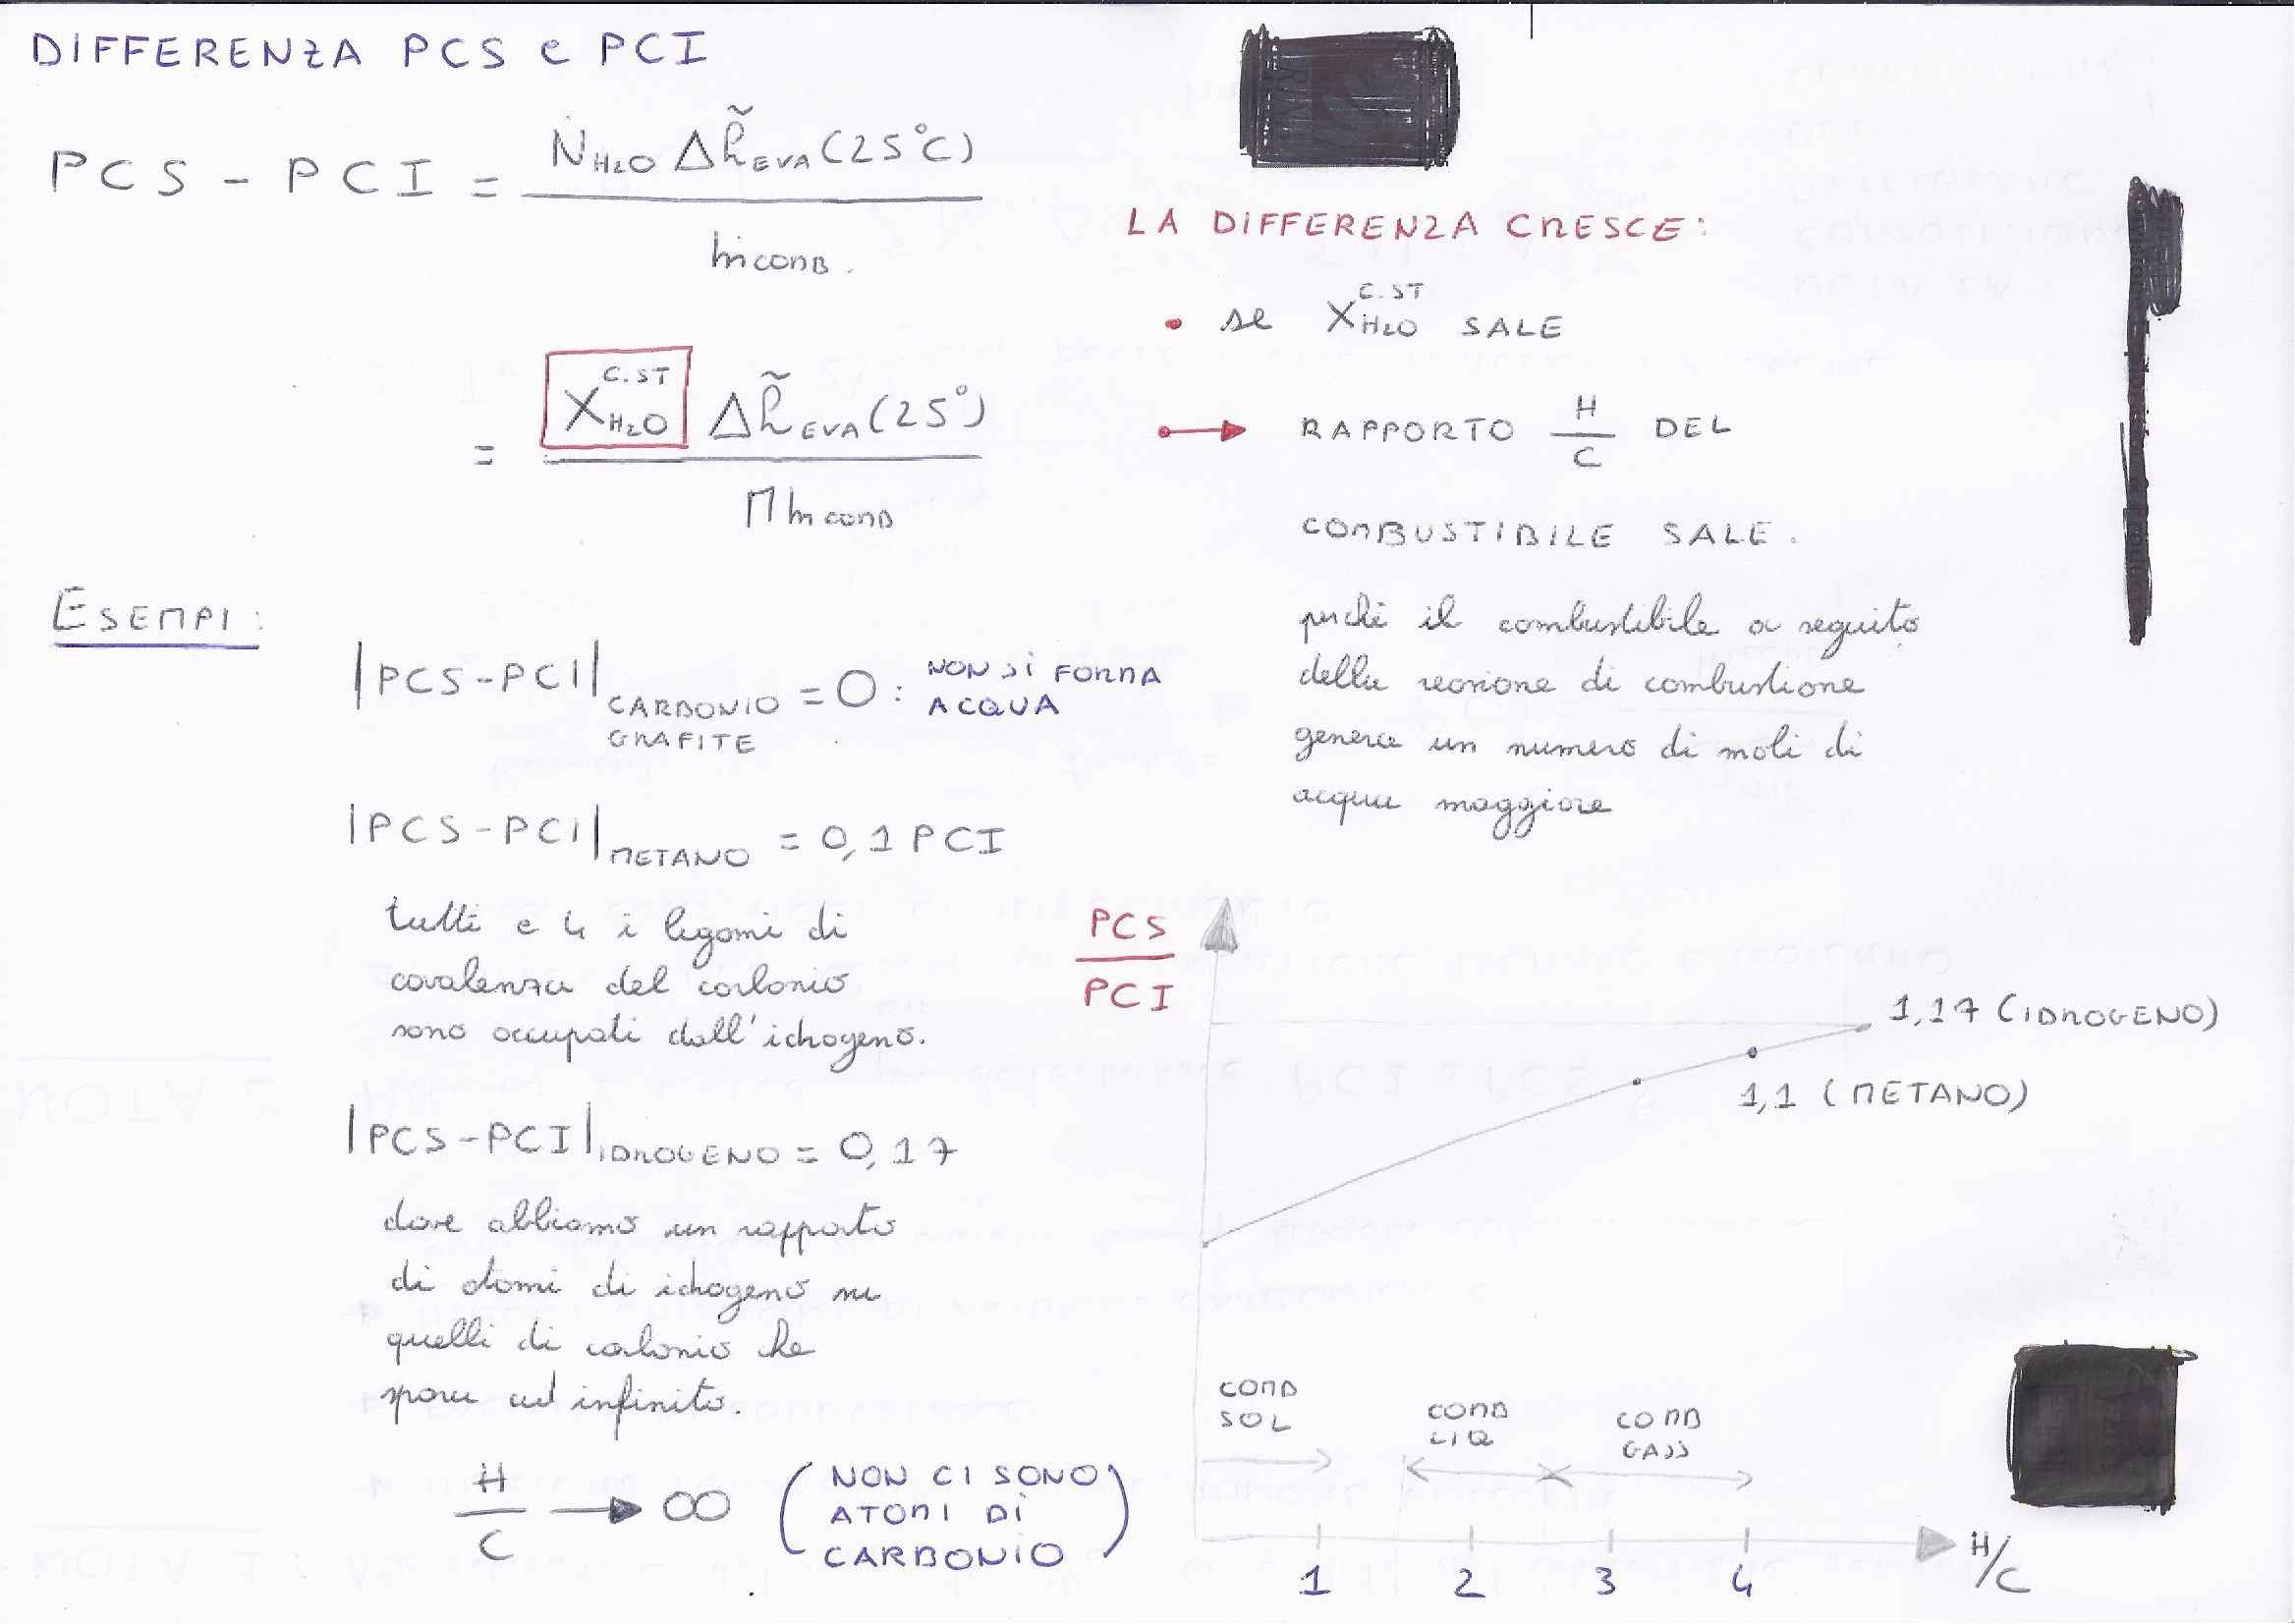 DIFFERENZA PCS e PCI
PCS - PCI = Ṅ H₂O Δh̃ EVA (25°C)
ṁ COMB.
= X H₂O C.ST Δh̃ EVA (25°)
Mm COMB
LA DIFFERENZA CRESCE:
• se X H₂O C.ST SALE
→ RAPPORTO H/C DEL
COMBUSTIBILE SALE.
perché il combustibile a seguito
della reazione di combustione
genera un numero di moli di
acqua maggiore
ESEMPI:
|PCS-PCI| CARBONIO GRAFITE = 0 : NON SI FORMA
ACQUA
|PCS-PCI| METANO = 0,1 PCI
tutti e 4 i legami di
covalenza del carbonio
sono occupati dall'idrogeno.
|PCS-PCI| IDROGENO = 0,17
dove abbiamo un rapporto
di atomi di idrogeno su
quelli di carbonio che
spara ad infinito.
H/C → ∞ (NON CI SONO
ATOMI DI
CARBONIO)
PCS
PCI
1,17 (IDROGENO)
1,1 (METANO)
COMB
SOL
COMB
LIQ
COMB
GASS
1 2 3 4
H/C